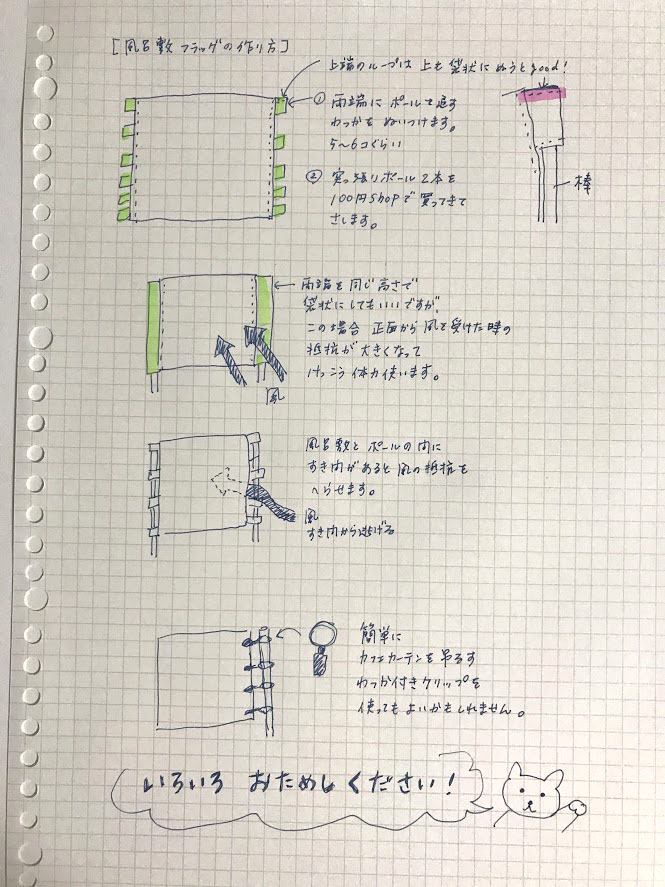 [風呂敷フラッグの作り方]
上端のループは 上も 袋状に ぬうとgood!
① 両端に ポールを通す
わっかを ぬいつけます。
5〜6コぐらい
② 突っ張りポール 2本を
100円shopで 買ってきて
さします。
棒
両端を同じ高さで
袋状にしてもいいですが、
この場合 正面から 風を受けた時の
抵抗が 大きくなって
けっこう体力使います。
風
風呂敷と ポールの間に
すき間があると 風の抵抗を
へらせます。
風
すき間から逃げる
簡単に
カフェカーテンを吊るす
わっか付きクリップを
使ってもよいかもしれません。
いろいろ おためしください!